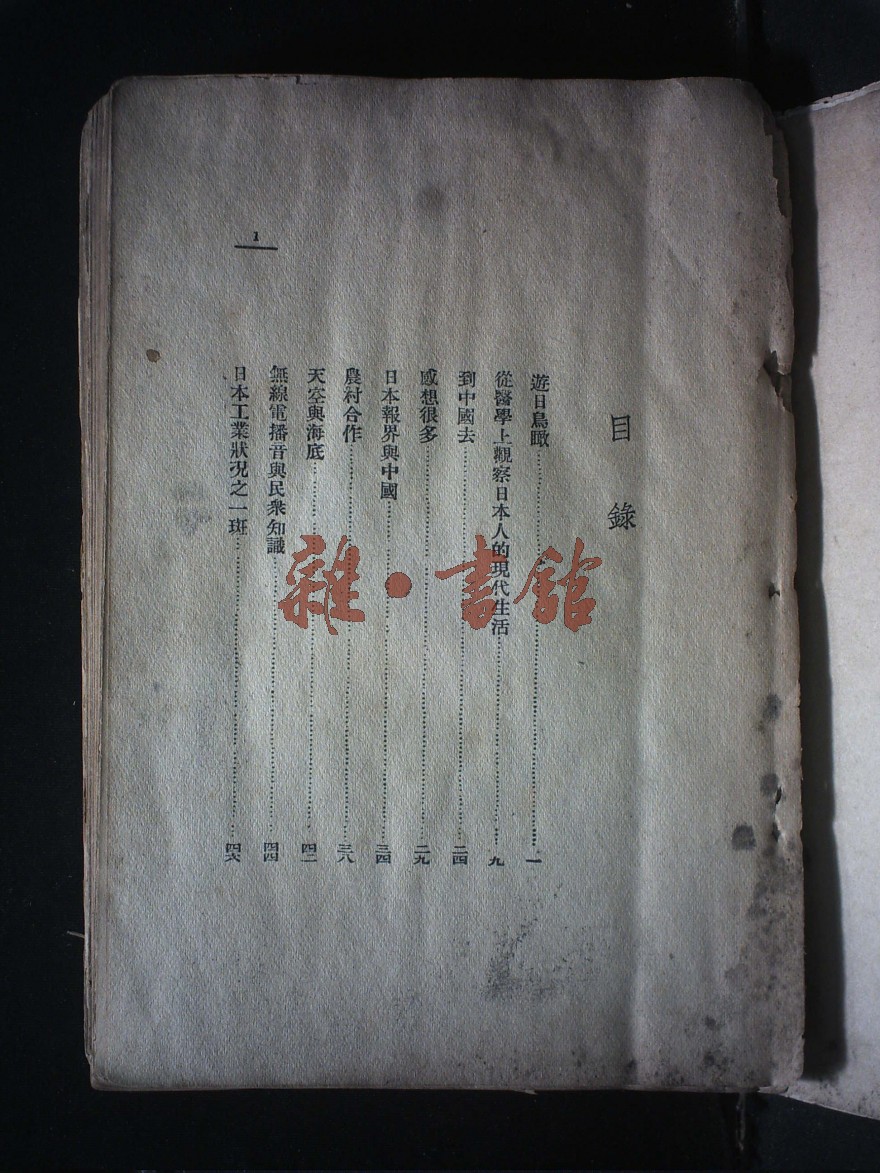 目錄
遊日鳥瞰……一
從醫學上觀察日本人的現代生活……九
到中國去……二四
感想很多……二九
日本報界與中國……三四
農村合作……三八
天空與海底……四二
無線電播音與民衆知識……四四
日本工業狀况之一斑……四六
1
雜·書館